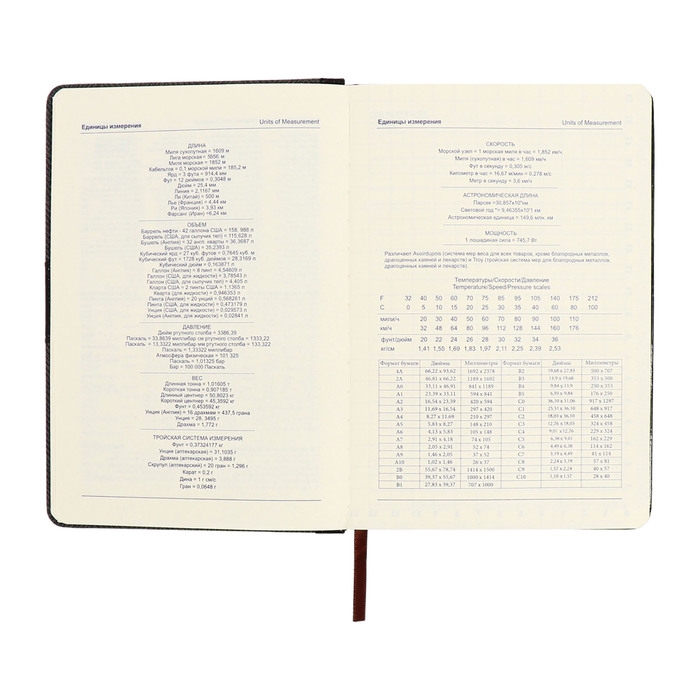 Единицы измерения Units of Measurement
ДЛИНА
Миля сухопутная = 1609 м
Лига морская = 5556 м
Миля морская = 1852 м
Кабельтов = 0,1 морской мили = 185,2 м
Ярд = 3 фута = 914,4 мм
Фут = 12 дюймов = 0,3048 м
Дюйм = 25,4 мм
Линия = 2,1167 мм
Ли (Китай) = 500 м
Лье (Франция) = 4,44 км
Ри (Япония) = 3,93 км
Фарсанг (Иран) =6,24 км
ОБЪЕМ
Баррель нефти - 42 галлона США = 158, 988 л
Баррель (США, для сыпучих тел) = 115,628 л
Бушель (Англия) = 32 англ. кварты = 36,3687 л
Бушель (США) = 35,2393 л
Кубический ярд = 27 куб. футов = 0,7645 куб. м
Кубический фут = 1728 куб. дюймов = 28,3169 л
Кубический дюйм = 0,163871 л
Галлон (Англия) = 8 пинт = 4,54609 л
Галлон (США, для жидкости) = 3,78543 л
Галлон (США, для сыпучих тел) = 4,405 л
Кварта США = 2 пинты США = 1,1365 л
Кварта (для жидкости) = 0,946353 л
Пинта (Англия) = 20 унций = 0,568261 л
Пинта (США, для жидкости) = 0,473179 л
Унция (США, для жидкости) = 0,029573 л
Унция (Англия, для жидкости) = 0,02841 л
ДАВЛЕНИЕ
Дюйм ртутного столба = 3386,39
Паскаль = 33,8639 миллибар дюйм ртутного столба = 1333,22
Паскаль = 13,3322 миллибар см ртутного столба = 133,322
Паскаль = 1,33322 миллибар
Атмосфера физическая = 101 325
Паскаль = 1,01325 бар
Бар = 100 000 Паскаль
ВЕС
Длинная тонна = 1,01605 т
Короткая тонна = 0,907185 т
Длинный центнер = 50,8023 кг
Короткий центнер = 45,3592 кг
Фунт = 0,453592 кг
Унция (Англия) = 16 драхмам = 437,5 грана
Унция = 28, 3495 г
Драхма = 1,772 г
ТРОЙСКАЯ СИСТЕМА ИЗМЕРЕНИЯ
Фунт = 0,37324177 кг
Унция (аптекарская) = 31,1035 г
Драхма (аптекарская) = 3,888 г
Скрупул (аптекарский) = 20 гран = 1,296 г
Карат = 0,2 г
Дина = 1 г см/с
Гран = 0,0648 г
Единицы измерения Units of Measurement
СКОРОСТЬ
Морской узел = 1 морская миля в час = 1,852 км/ч
Миля (сухопутная) в час = 1,609 км/ч
Фут в секунду = 0,305 м/с
Километр в час = 16,67 м/мин = 0,278 м/с
Метр в секунду = 3,6 км/ч
АСТРОНОМИЧЕСКАЯ ДЛИНА
Световой год
Астрономическая единица = 149,6 млн. км
МОЩНОСТЬ
1 лошадиная сила = 745,7 Вт
Различают Avoirdupois (система мер веса для всех товаров, кроме благородных металлов,
драгоценных камней и лекарств) и Troy (тройская система мер для благородных металлов,
драгоценных камней и лекарств).
Температуры/Скорости/Давление
Temperature/Speed/Pressure scales
F 32 40 50 60 70 75 85 95 105 140 175 212
C 0 5 10 15 20 25 30 35 40 60 80 100
мили/ч 20 30 40 50 60 70 80 90 100 110
км/ч 32 48 64 80 96 112 128 144 160 176
фунт/дюйм 20 22 24 26 28 30 32 34 36
кг/см 1,41 1,55 1,69 1,83 1,97 2,11 2,25 2,39 2,53
Формат бумаги Дюймы Миллиметры Формат бумаги Дюймы Миллиметры
4A 66,22 x 93,62 1692 x 2378 B2 19,68 x 27,83 500 x 707
2A 46,81 x 66,22 1189 x 1692 B3 13,9 x 19,68 353 x 500
A0 33,11 x 46,81 841 x 1189 B4 9,84 x 13,9 250 x 353
A1 23,39 x 33,11 594 x 841 B5 6,93 x 9,84 176 x 250
A2 16,54 x 23,39 420 x 594 C0 36,10 x 51,06 917 x 1297
A3 11,69 x 16,54 297 x 420 C1 25,51 x 36,10 648 x 917
A4 8,27 x 11,69 210 x 297 C2 18,03 x 36,10 458 x 648
A5 5,83 x 8,27 148 x 210 C3 12,76 x 18,03 324 x 458
A6 4,13 x 5,83 105 x 148 C4 9,01 x 12,76 229 x 324
A7 2,91 x 4,18 74 x 105 C5 6,38 x 9,01 162 x 229
A8 2,05 x 2,91 52 x 74 C6 4,49 x 6,38 114 x 162
A9 1,46 x 2,05 37 x 52 C7 3,19 x 4,49 81 x 114
A10 1,02 x 1,46 26 x 37 C8 2,24 x 3,19 57 x 81
2B 55,67 x 78,74 1414 x 1500 C9 1,57 x 2,24 40 x 57
B0 39,37 x 55,67 1000 x 1414 C10 1,10 x 1,57 28 x 40
B1 27,83 x 39,37 707 x 1000